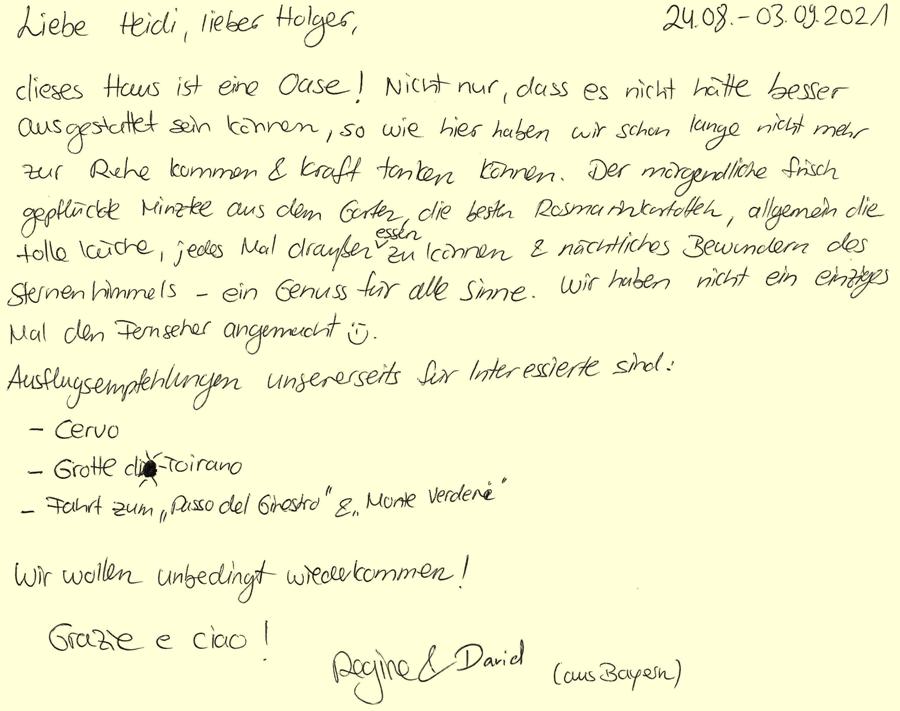 Liebe Heidi, lieber Holger, 24.08.-03.09.2021
dieses Haus ist eine Oase! Nicht nur, dass es nicht hätte besser
ausgestattet sein können, so wie hier haben wir schon lange nicht mehr
zur Ruhe kommen & Kraft tanken können. Der morgendliche frisch
gepflückte Minztee aus dem Garten, die besten Rosmarinkartoffeln, allgemein die
tolle Küche, jedes Mal draußen essen zu können & nächtliches Bewundern des
Sternenhimmels - ein Genuss für alle Sinne. Wir haben nicht ein einziges
Mal den Fernseher angemacht ☺.
Ausflugsempfehlungen unsererseits für Interessierte sind:
- Cervo
- Grotte di Toirano
- Fahrt zum "Passo del Ginestro" & "Monte Verdene"
Wir wollen unbedingt wiederkommen!
Grazie e ciao!
Regine & David (aus Bayern)